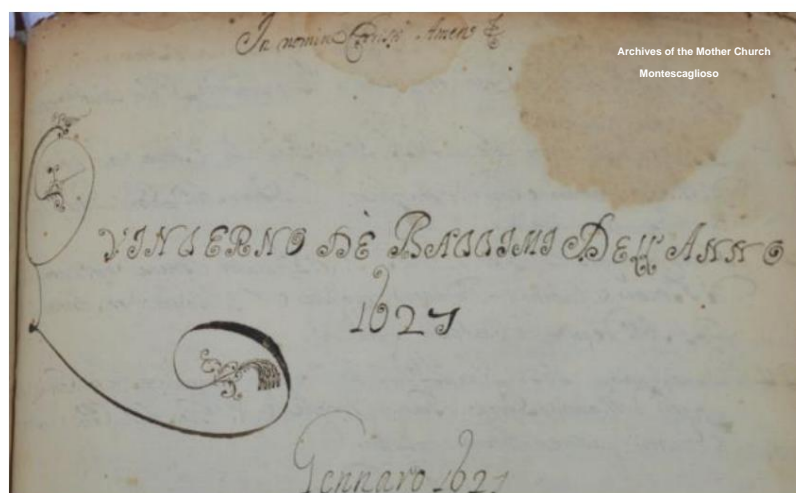 In nomine Christi Amen
Archives of the Mother Church
Montescaglioso
QVINTERNO DÈ BATTIMI DELL'ANNO
1627
Gennaro 1627